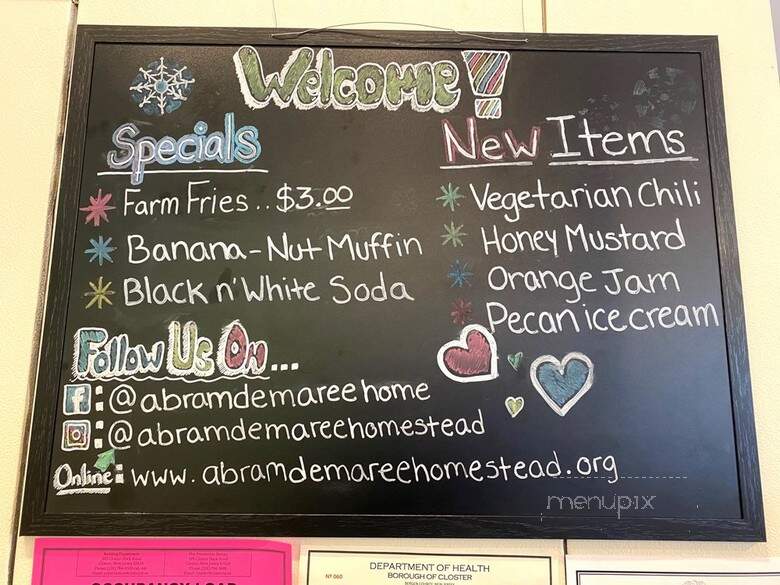 Welcome!
Specials
* Farm Fries.. $3.00
* Banana-Nut Muffin
* Black n' White Soda
New Items
* Vegetarian Chili
* Honey Mustard
* Orange Jam
* Pecan ice cream
Follow Us On...
f : @abramdemareehome
: @abramdemareehomestead
Online: www.abramdemareehomestead.org
menupix
OCCUPANCY LOAD
Nº 060
DEPARTMENT OF HEALTH
BOROUGH OF CLOSTER